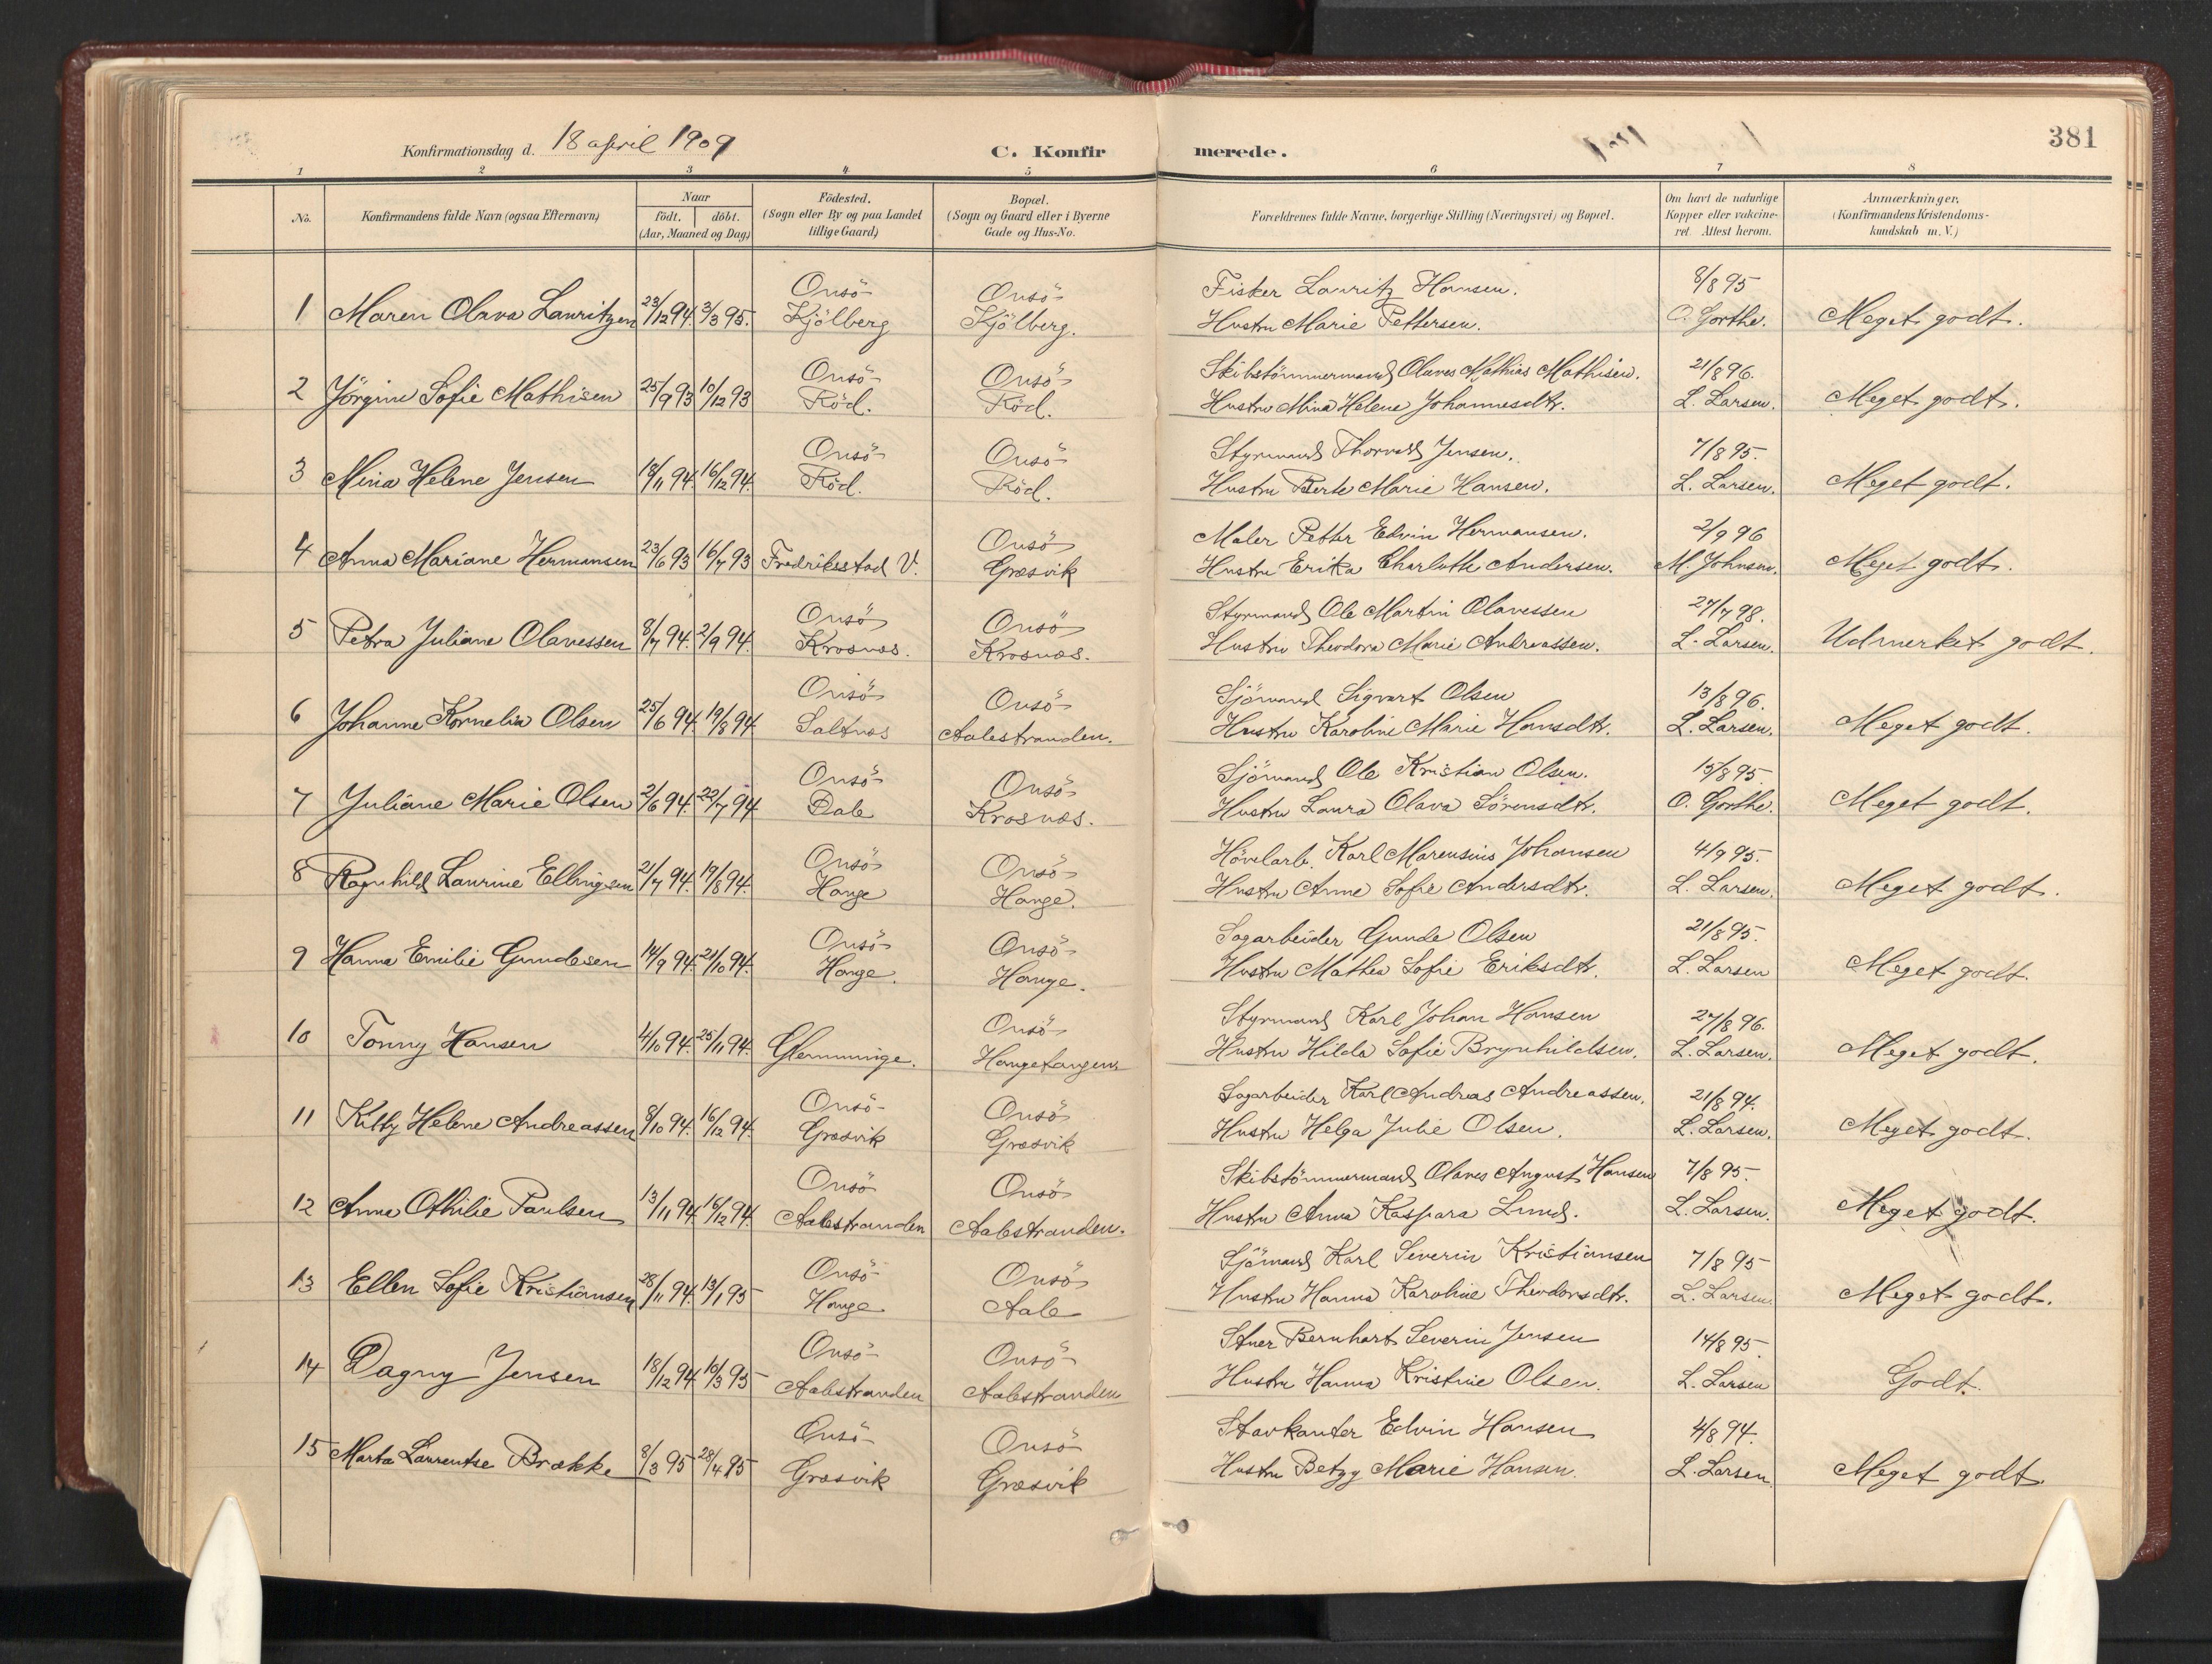 381
Konfirmationsdag d. 18 april 1909
C. Konfirmerede.
1 2 3 4 5 6 7 8
No.
Konfirmandens fulde Navn (ogsaa Efternavn)
Naar
født. døbt.
(Aar, Maaned og Dag)
Födested.
(Sogn eller By og paa Landet
tillige Gaard)
Bopæl.
(Sogn og Gaard eller i Byerne
Gade og Hus-No.
Forældrenes fulde Navne, borgerlige Stilling (Næringsvei) og Bopæl.
Om havt de naturlige
Kopper eller vakcine-
ret. Attest herom.
Anmærkninger,
(Konfirmandens Kristendoms-
kundskab m. V.)
Onsö Onsö Fisker Lauritz Hansen. 8/8 95
1 Maren Olava Lauritzen 23/12 94. 3/3 95. Kjölberg Kjölberg. Hustru Marie Pettersen. O. Gorthe. Meget godt.
Onsö Onsö Skibstömmermand Olaves Mathias Mathisen. 21/8 96.
2 Jörgine Sofie Mathisen 25/9 93 10/12 93 Röd. Röd. Hustru Mina Helene Johannesdtr. L. Larsen. Meget godt.
Onsö Onsö Styrmand Thorvald Jensen. 7/8 95.
3 Mina Helene Jensen 18/11 94. 16/12 94. Röd. Röd. Hustru Berte Marie Hansen. L. Larsen. Meget godt.
Onsö Maler Petter Edvin Hermansen. 2/9 96
4 Anna Mariane Hermansen 23/6 93 16/7 93 Fredriksstad V. Græsvik Hustru Erika Charlotte Andersen. M. Johnsen. Meget godt.
Onsö Onsö Styrmand Ole Martin Olavessen 27/7 98.
5 Petra Juliane Olavessen 8/7 94. 2/9 94. Krosnæs. Krosnæs. Hustru Theodora Marie Andreassen. L. Larsen. Udmerket godt.
Onsö Onsö Sjömand Sigvart Olsen 13/8 96.
6 Johanne Kornelia Olsen 25/6 94. 19/8 94. Saltnæs Aalestranden. Hustru Karoline Marie Hansdtr. L. Larsen. Meget godt.
Onsö Onsö Sjömand Ole Kristian Olsen. 15/8 95.
7 Juliane Marie Olsen 2/6 94. 22/7 94 Dale Krosnæs. Hustru Laura Olava Sörensdtr. O. Gorthe. Meget godt.
Onsö Onsö Hövelarb. Karl Marensius Johansen 4/9 95.
8 Ragnhild Laurine Ellingsen 21/7 94. 19/8 94. Hauge Hauge. Hustru Anne Sofie Andersdtr. L. Larsen. Meget godt.
Onsö Onsö Sagarbeider Gunde Olsen 21/8 95.
9 Hanna Emilie Gundesen 14/9 94. 21/10 94. Hauge. Hauge. Hustru Mathea Sofie Eriksdtr. L. Larsen Meget godt.
Onsö Styrmand Karl Johan Hansen 27/8 96.
10 Tonny Hansen 4/10 94. 25/11 94. Glemminge. Haugetangen Hustru Hilda Sofie Brynhildsen. L. Larsen. Meget godt.
Onsö Onsö Sagarbeider Karl Andreas Andreassen. 21/8 94.
11 Kitty Helene Andreassen 8/10 94. 16/12 94. Græsvik Græsvik Hustru Helga Julie Olsen. L. Larsen. Meget godt.
Onsö Onsö Skibstömmermand Olaves August Hansen 7/8 95.
12 Anna Othilie Paulsen 13/11 94 16/12 94. Aalestranden Aalestranden. Hustru Anna Kaspara Lund. L. Larsen. Meget godt.
Onsö Onsö Sjömand Karl Severin Kristiansen 7/8 95
13 Ellen Sofie Kristiansen 28/11 94. 13/1 95 Hauge Aale Hustru Hanna Karoline Theodorsdtr. L. Larsen. Meget godt.
Onsö Onsö Stuer Bernhart Severin Jensen 14/8 95.
14 Dagny Jensen 18/12 94 10/3 95 Aalestranden Aalestranden Hustru Hanna Kristine Olsen. L. Larsen Godt.
Onsö Onsö Stavkanter Edvin Hansen 4/8 94.
15 Marta Laurentse Brække 8/3 95 28/4 95 Græsvik Græsvik Hustru Betzy Marie Hansen. L. Larsen Meget godt.